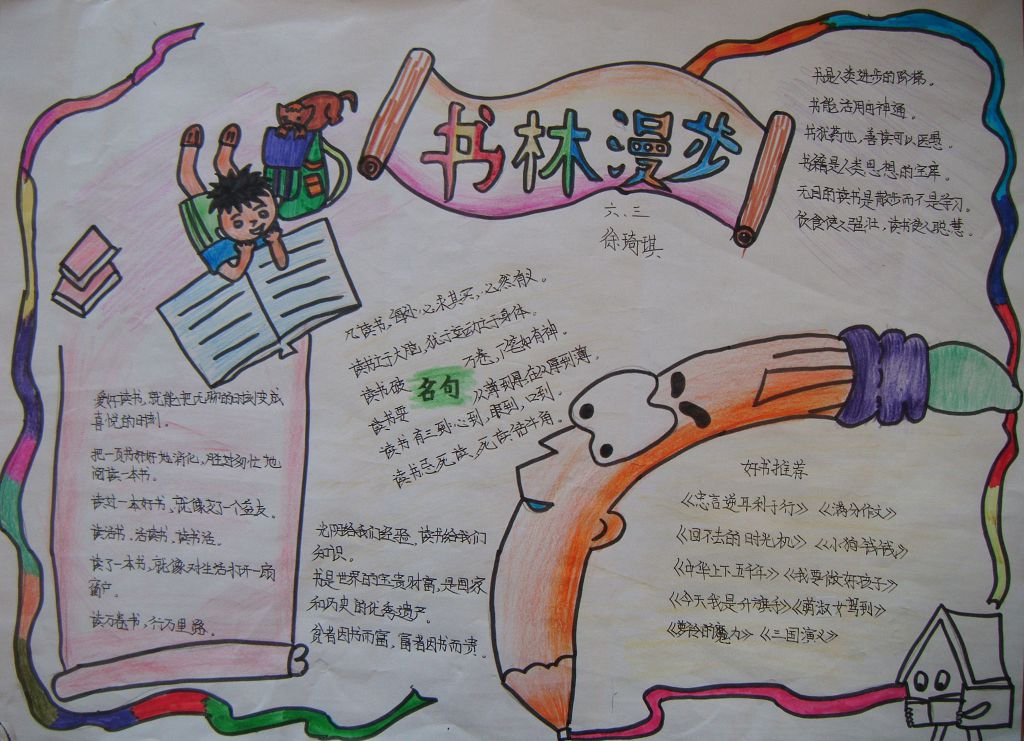 书林漫步
六、三
徐琦琪
书是人类进步的阶梯。
书能活用由神通。
书犹药也，善读可以医愚。
书籍是人类思想的宝库。
无目的读书是散步而不是学习。
饮食使人强壮，读书使人聪慧。
凡读书，必求其实，必然有义。
读书之于大脑，犹于运动之于身体。
读书破万卷，下笔如有神
读书要从薄到厚在从厚到薄。
名句
读书有三到心到，眼到，口到。
读书忌死读，死读钻牛角。
爱好读书，就能把无聊的时刻变成
喜悦的时刻。
把一页书好好地消化，胜过匆忙地
阅读一本书。
读过一本好书，就像交了一个益友。
读活书，活读书，读书活。
读了一本书，就像对生活打开一扇
窗户。
读万卷书，行万里路。
光阴给我们经验，读书给我们
知识。
书是世界的宝贵财富，是国家
和历史的优秀遗产。
贫者因书而富，富者因书而贵。
好书推荐
《忠言逆耳利于行》 《满分作文》
《回不去的时光机》 《小狗钱钱》
《中华上下五千年》 《我要做好孩子》
《今天我是升旗手》 《萌淑女驾到》
的魔力》 《三国演义》